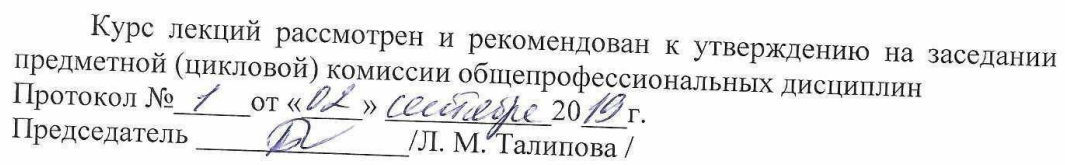 Курс лекций рассмотрен и рекомендован к утверждению на заседании
предметной (цикловой) комиссии общепрофессиональных дисциплин
Протокол № 1 от «02» сентября 2019г.
Председатель /Л. М. Талипова /